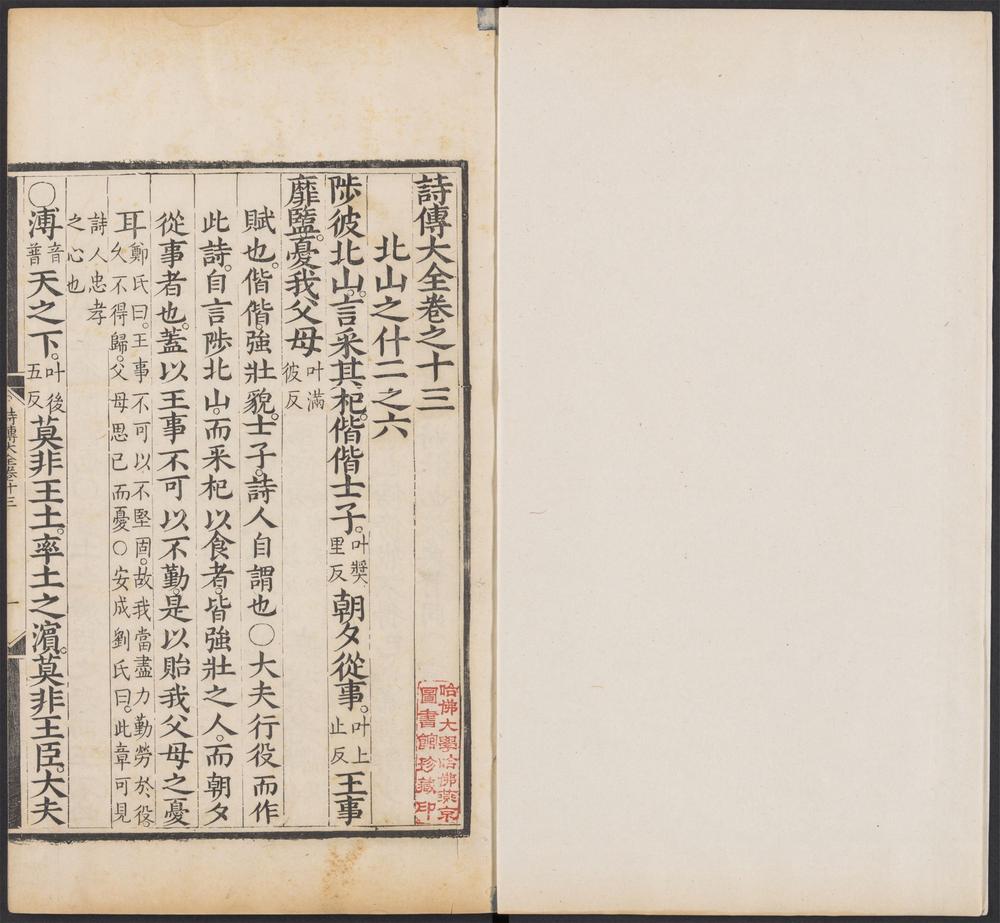 詩傳大全卷之十三
北山之什二之六
陟彼北山。言采其杞。偕偕士子。叶獎里反朝夕從事。叶上止反王事
靡盬。憂我父母叶滿彼反
賦也。偕偕。強壯貌。士子。詩人自謂也○大夫行役而作
此詩。自言陟北山。而采杞以食者。皆強壯之人。而朝夕
從事者也。蓋以王事不可以不勤。是以貽我父母之憂
耳鄭氏曰。王事不可以不堅固。故我當盡力勤勞於役。
久不得歸。父母思已而憂○安成劉氏曰。此章可見
詩人忠孝
之心也
○溥音普天之下。叶後五反莫非王土。率土之濱。莫非王臣。大夫
詩傳大全卷十三
一
哈佛大學哈佛燕京
圖書館珍藏印